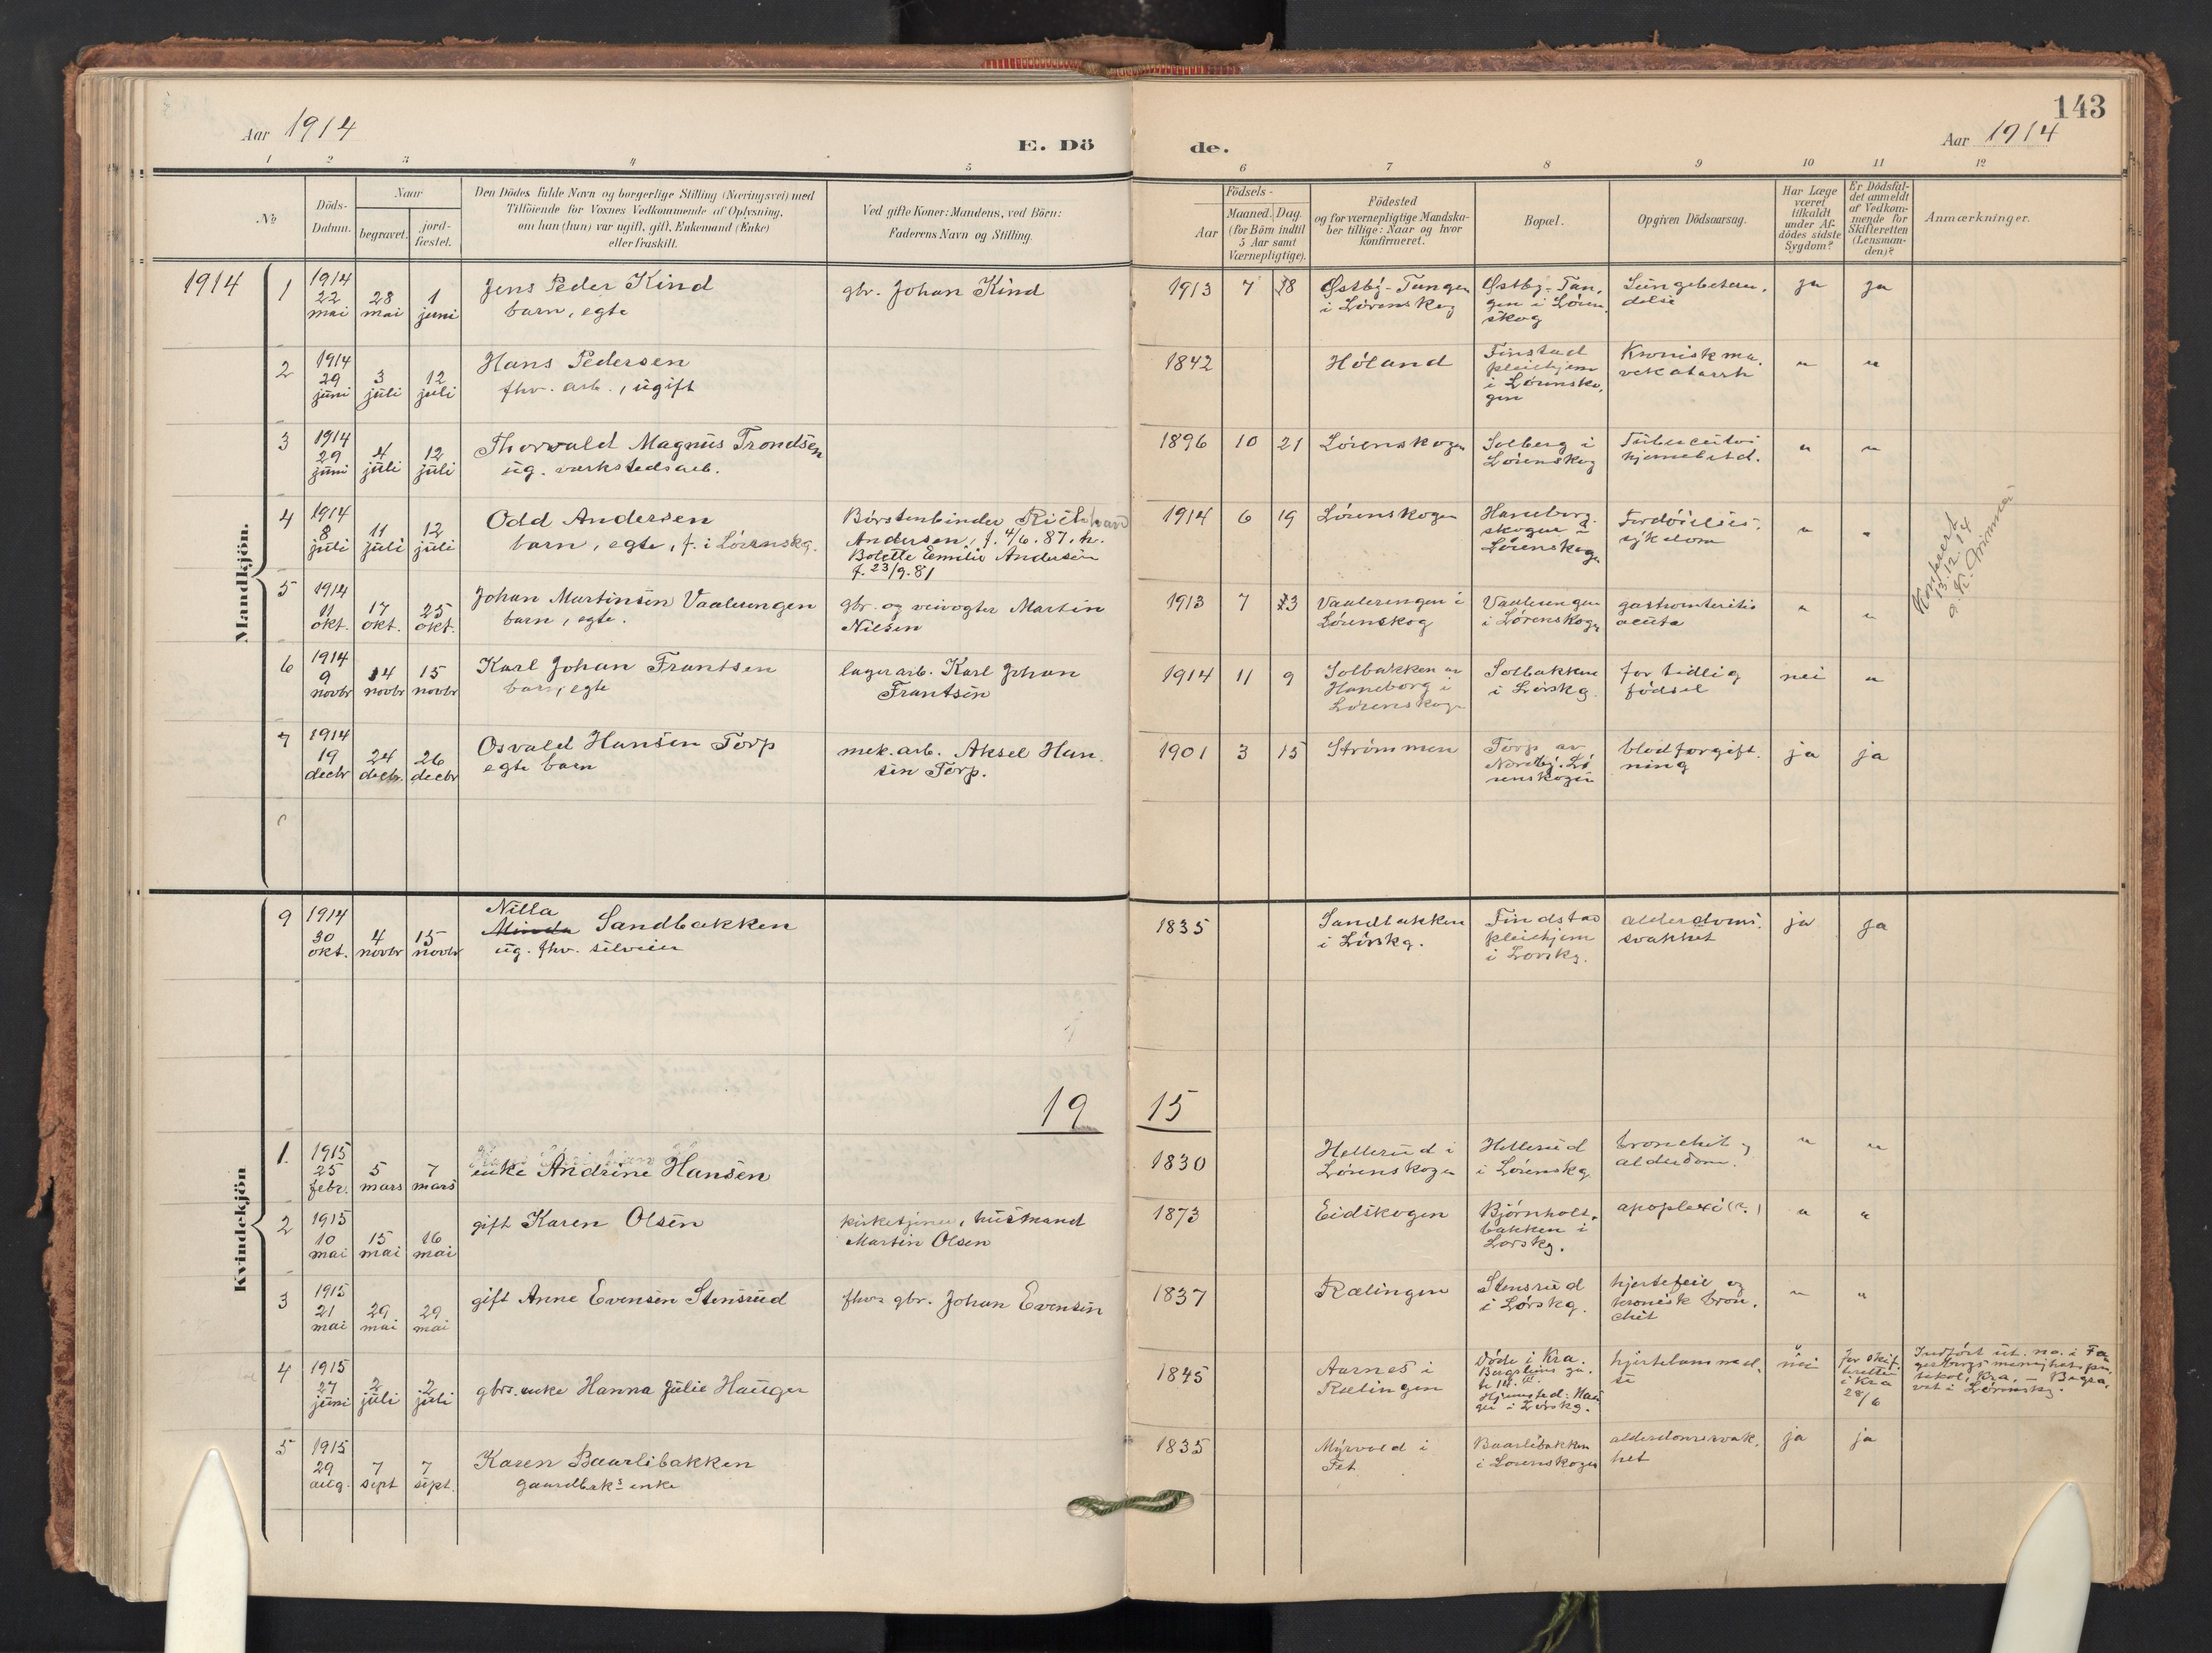 143
Aar 1914
E. Dö
de.
Aar 1914
1 2 3 4 5 6 7 8 9 10 11 12
No
Döds-
Datum.
Naar
begravet.
jord-
fæstet.
Den Dödes fulde Navn og borgerlige Stilling (Næringsvei) med
Tilföiende for Voxnes Vedkommende af Oplysning,
om han (hun) var ugift, gift, Enkemand (Enke)
eller fraskilt.
Ved gifte Koner: Mandens, ved Börn:
Faderens Navn og Stilling.
Födsels-
Aar
Maaned. Dag.
(for Börn indtil
5 Aar samt
Værnepligtige).
Födested
og for værnepligtige Mandska-
ber tillige: Naar og hvor
konfirmeret.
Bopæl.
Opgiven Dödsaarsag.
Har Læge
været
tilkaldt
under Af-
dödes sidste
Sygdom?
Er Dödsfal-
det anmeldt
af Vedkom-
mende for
Skifteretten
(Lensman-
den)?
Anmærkninger.
Mandkjön.
1914
1
1914
22
mai
28
mai
1
juni
Jens Peder Kind
barn, egte
gbr. Johan Kind
1913 7 18
Østby-Tangen
i Lørenskog
Østby-Tan-
gen i Løren-
skog
Lungebeten-
delse
ja ja
2
1914
29
juni
3
juli
12
juli
Hans Pedersen
fhv. arb., ugift
1842
Høland
Finstad
pleiehjem
i Lørensko-
gen
Kronisk ma-
vekatarrh
" "
3
1914
29
juni
4
juli
12
juli
Thorvald Magnus Trondsen
ug. verkstedsarb.
1896 10 21
Lørenskogen
Solberg i
Lørenskog
Tuberculøs
hjernebetd.
" "
4
1914
8
juli
11
juli
12
juli
Odd Andersen
barn, egte, f. i Lørenskg.
Børstenbinder Richard
Andersen, f. 4/6. 87. h.
Bolette Emilie Andersen
f. 23/9. 81
1914 6 19
Lørenskogen
Haneborg-
skogen i
Lørenskogen
Fordøielses-
sykdom
" "
Konferert
13.12.14
5
1914
11
okt.
17
okt.
25
okt.
Johan Martinsen Vaalerengen
barn, egte.
gbr. og veivogter Martin
Nilsen
1913 7 23
Vaalerengen i
Lørenskog
Vaalerengen
i Lørenskogen
gastroenteritis
acuta
" "
6
1914
9
novbr
14
novbr
15
novbr
Karl Johan Frantsen
barn, egte
lagerarb. Karl Johan
Frantsen
1914 11 9
Solbakken av
Haneborg i
Lørenskogen
Solbakken
i Lørskg.
for tidlig
fødsel
nei "
7
1914
19
decbr
24
decbr.
26
decbr
Osvald Hansen Torp
egte barn
mek. arb. Aksel Han-
sen Torp.
1901 3 15
Strømmen
Torp av
Nordby. Lø
renskogen
blodforgift-
ning
ja ja
Kvindekjön
9
1914
30
okt.
4
novbr
15
novbr
Nilla
Minda Sandbakken
ug. fhv. silveier
1835
Sandbakken
i Lørskg.
Findstad
pleiehjem
i Lørskg.
alderdoms-
svakhet
ja ja
19 15
1.
1915
25
febr.
5
mars
7
mars
enke Andrine Hansen
1830
Hellerud i
Lørenskogen
Hellerud
i Lørenskg
bronchit og
alderdom.
" "
2
1915
10
mai
15
mai
16
mai
gift Karen Olsen
kirketjener, husmand
Martin Olsen
1873
Eidskogen
Bjørnholt-
bakken i
Lørskg.
apoplexi (?)
" "
3
1915
21
mai
29
mai
29
mai
gift Anne Evensen Stensrud
fhv. gbr. Johan Evensen
1837
Rælingen
Stensrud
i Lørskg.
hjertefeil og
kronisk bron-
chit
" "
4
1915
27
juni
2
juli
2
juli
gbrs. enke Hanna Julie Hauger
1845
Aarnes i
Rælingen
Døde i Kra.
Bergsliens ga-
te 14. III.
Hjemsted: Hau
ger i Lørskg.
hjertelammel-
se
nei
for skif-
teretten
i Kra
28/6
Indført ut. no. i Fa
gerborgs menighets pro-
tokol, Kra. - Begra-
vet i Lørenskg.
5
1915
29
aug.
7
sept
7
sept.
Karen Baarlibakken
gaardbrs enke
1835
Myrvold i
Fet
Baarlibakken
i Lørenskogen
alderdomssvak-
het
ja ja